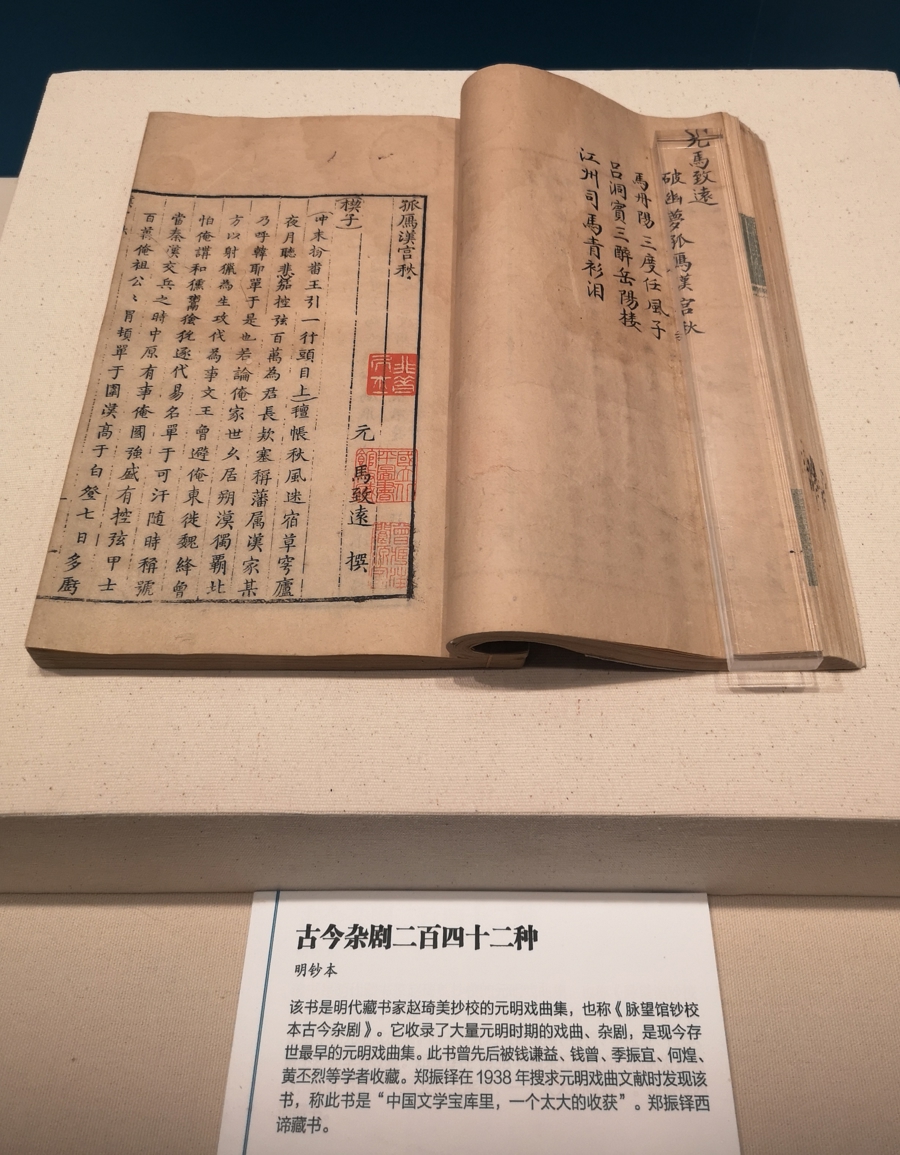 元馬致遠
破幽夢孤鴈漢宮秋
馬丹陽三度任風子
呂洞賓三醉岳陽楼
江州司馬青衫泪
孤鴈漢宮秋
元 馬致遠 撰
楔子
冲末扮畨王引一行頭目上氊帳秋風迷宿草穹廬
夜月聽悲笳控弦百萬為君長欵塞稱藩属漢家某
乃呼韓耶單于是也若論俺家世久居朔漠獨覇北
方以射獵為生攻伐為事文王曾避俺東徙魏絳曾
怕俺講和獯鬻獫狁逐代易名單于可汗随時稱號
當秦漢交兵之時中原有事俺國強盛有控弦甲士
百萬俺祖公公冐頓單于圍漢高于白登七日多虧
古今杂剧二百四十二种
明钞本
该书是明代藏书家赵琦美抄校的元明戏曲集，也称《脉望馆钞校
本古今杂剧》。它收录了大量元明时期的戏曲、杂剧，是现今存
世最早的元明戏曲集。此书曾先后被钱谦益、钱曾、季振宜、何煌、
黄丕烈等学者收藏。郑振铎在 1938 年搜求元明戏曲文献时发现该
书，称此书是“中国文学宝库里，一个太大的收获”。郑振铎西
谛藏书。